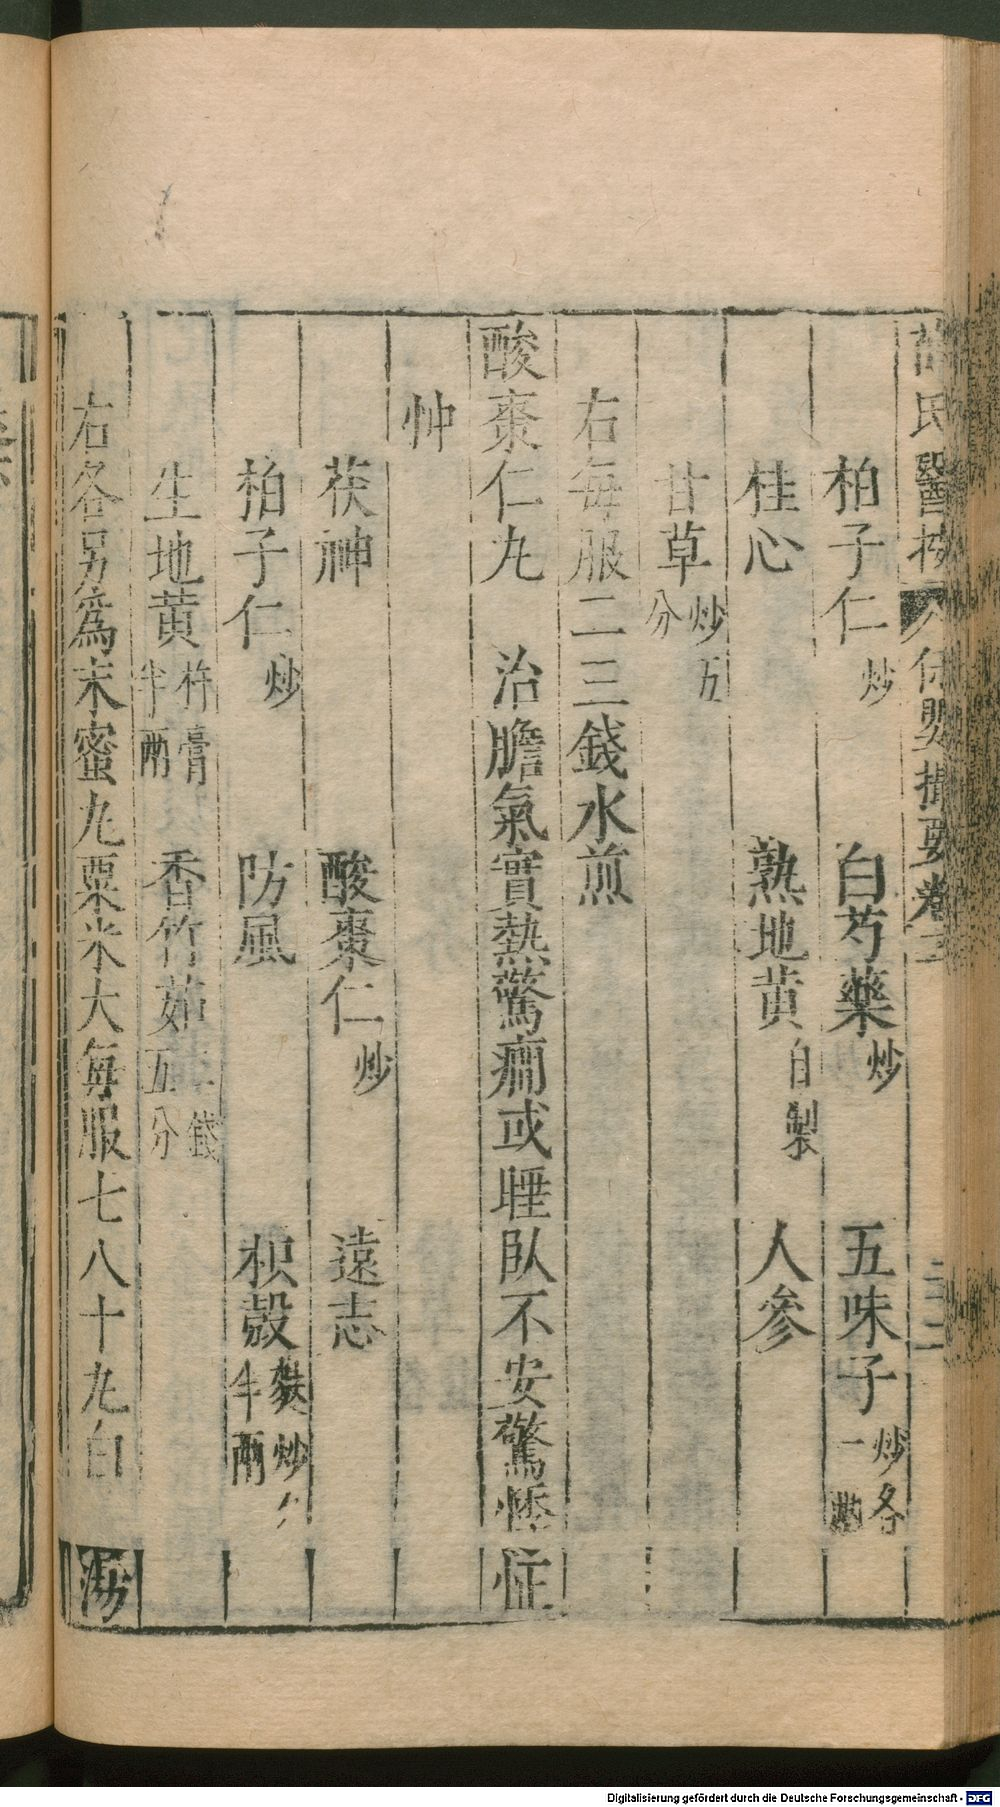 薛氏醫按 保嬰撮要卷三 二二
柏子仁炒 白芍藥炒 五味子炒各一
桂心 熟地黄自製 人参
甘草炒五分
右每服二三錢水煎
酸棗仁丸 治膽氣實熱驚癇或睡臥不安驚悸怔
忡
茯神 酸棗仁炒 遠志
柏子仁炒 防風 枳殼麩炒各半兩
生地黄杵膏半兩 香竹茹二錢五分
右各另爲末蜜丸粟米大每服七八十丸白湯
Digitalisierung gefördert durch die Deutsche Forschungsgemeinschaft - DFG